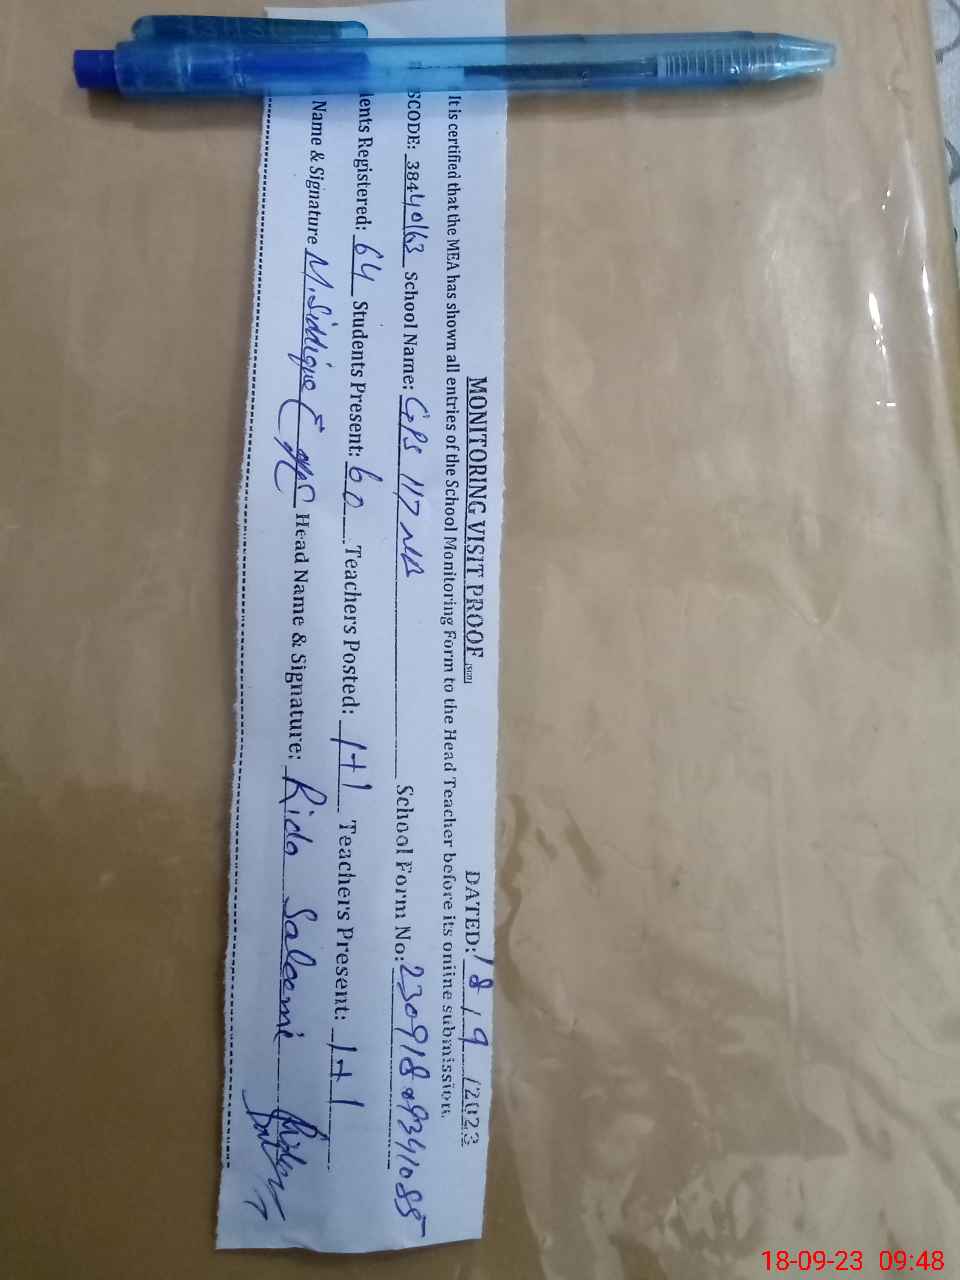 MONITORING VISIT PROOF DATED: 18/9/2023
It is certified that the MEA has shown all entries of the School Monitoring Form to the Head Teacher before its online submission.
SCODE: 38440163 School Name: GPS 117 NB School Form No: 23091809341085
ents Registered: 64 Students Present: 60 Teachers Posted: 1+1 Teachers Present: 1+1
Name & Signature M. Siddique Head Name & Signature: Rida Saleemi
18-09-23 09:48